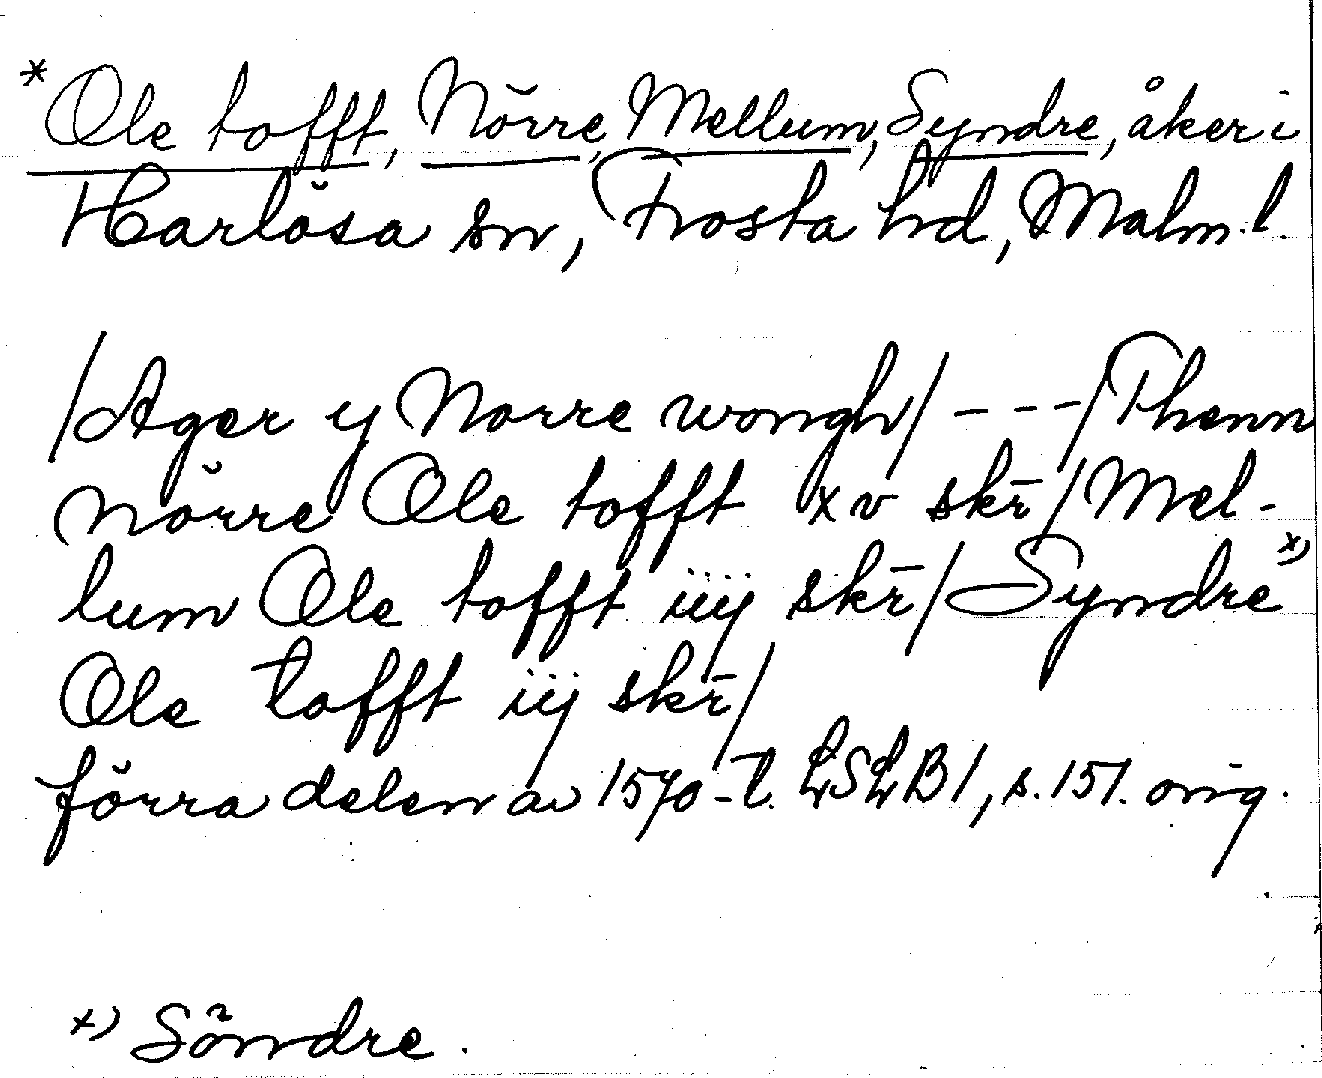 *Ole tofft, Nörre, Mellum, Syndre, åker i
Harlösa sn, Frosta hd, Malm. l.
/Ager y Norre wongh/ - - - /Thenn
nörre Ole tofft xv skr̄/Mel-
lum Ole tofft iiij skr̄/Syndre x)
Ole tofft iij skr̄/
förra delen av 1570-t. LSLB1, s. 151. orig.
x) Söndre.